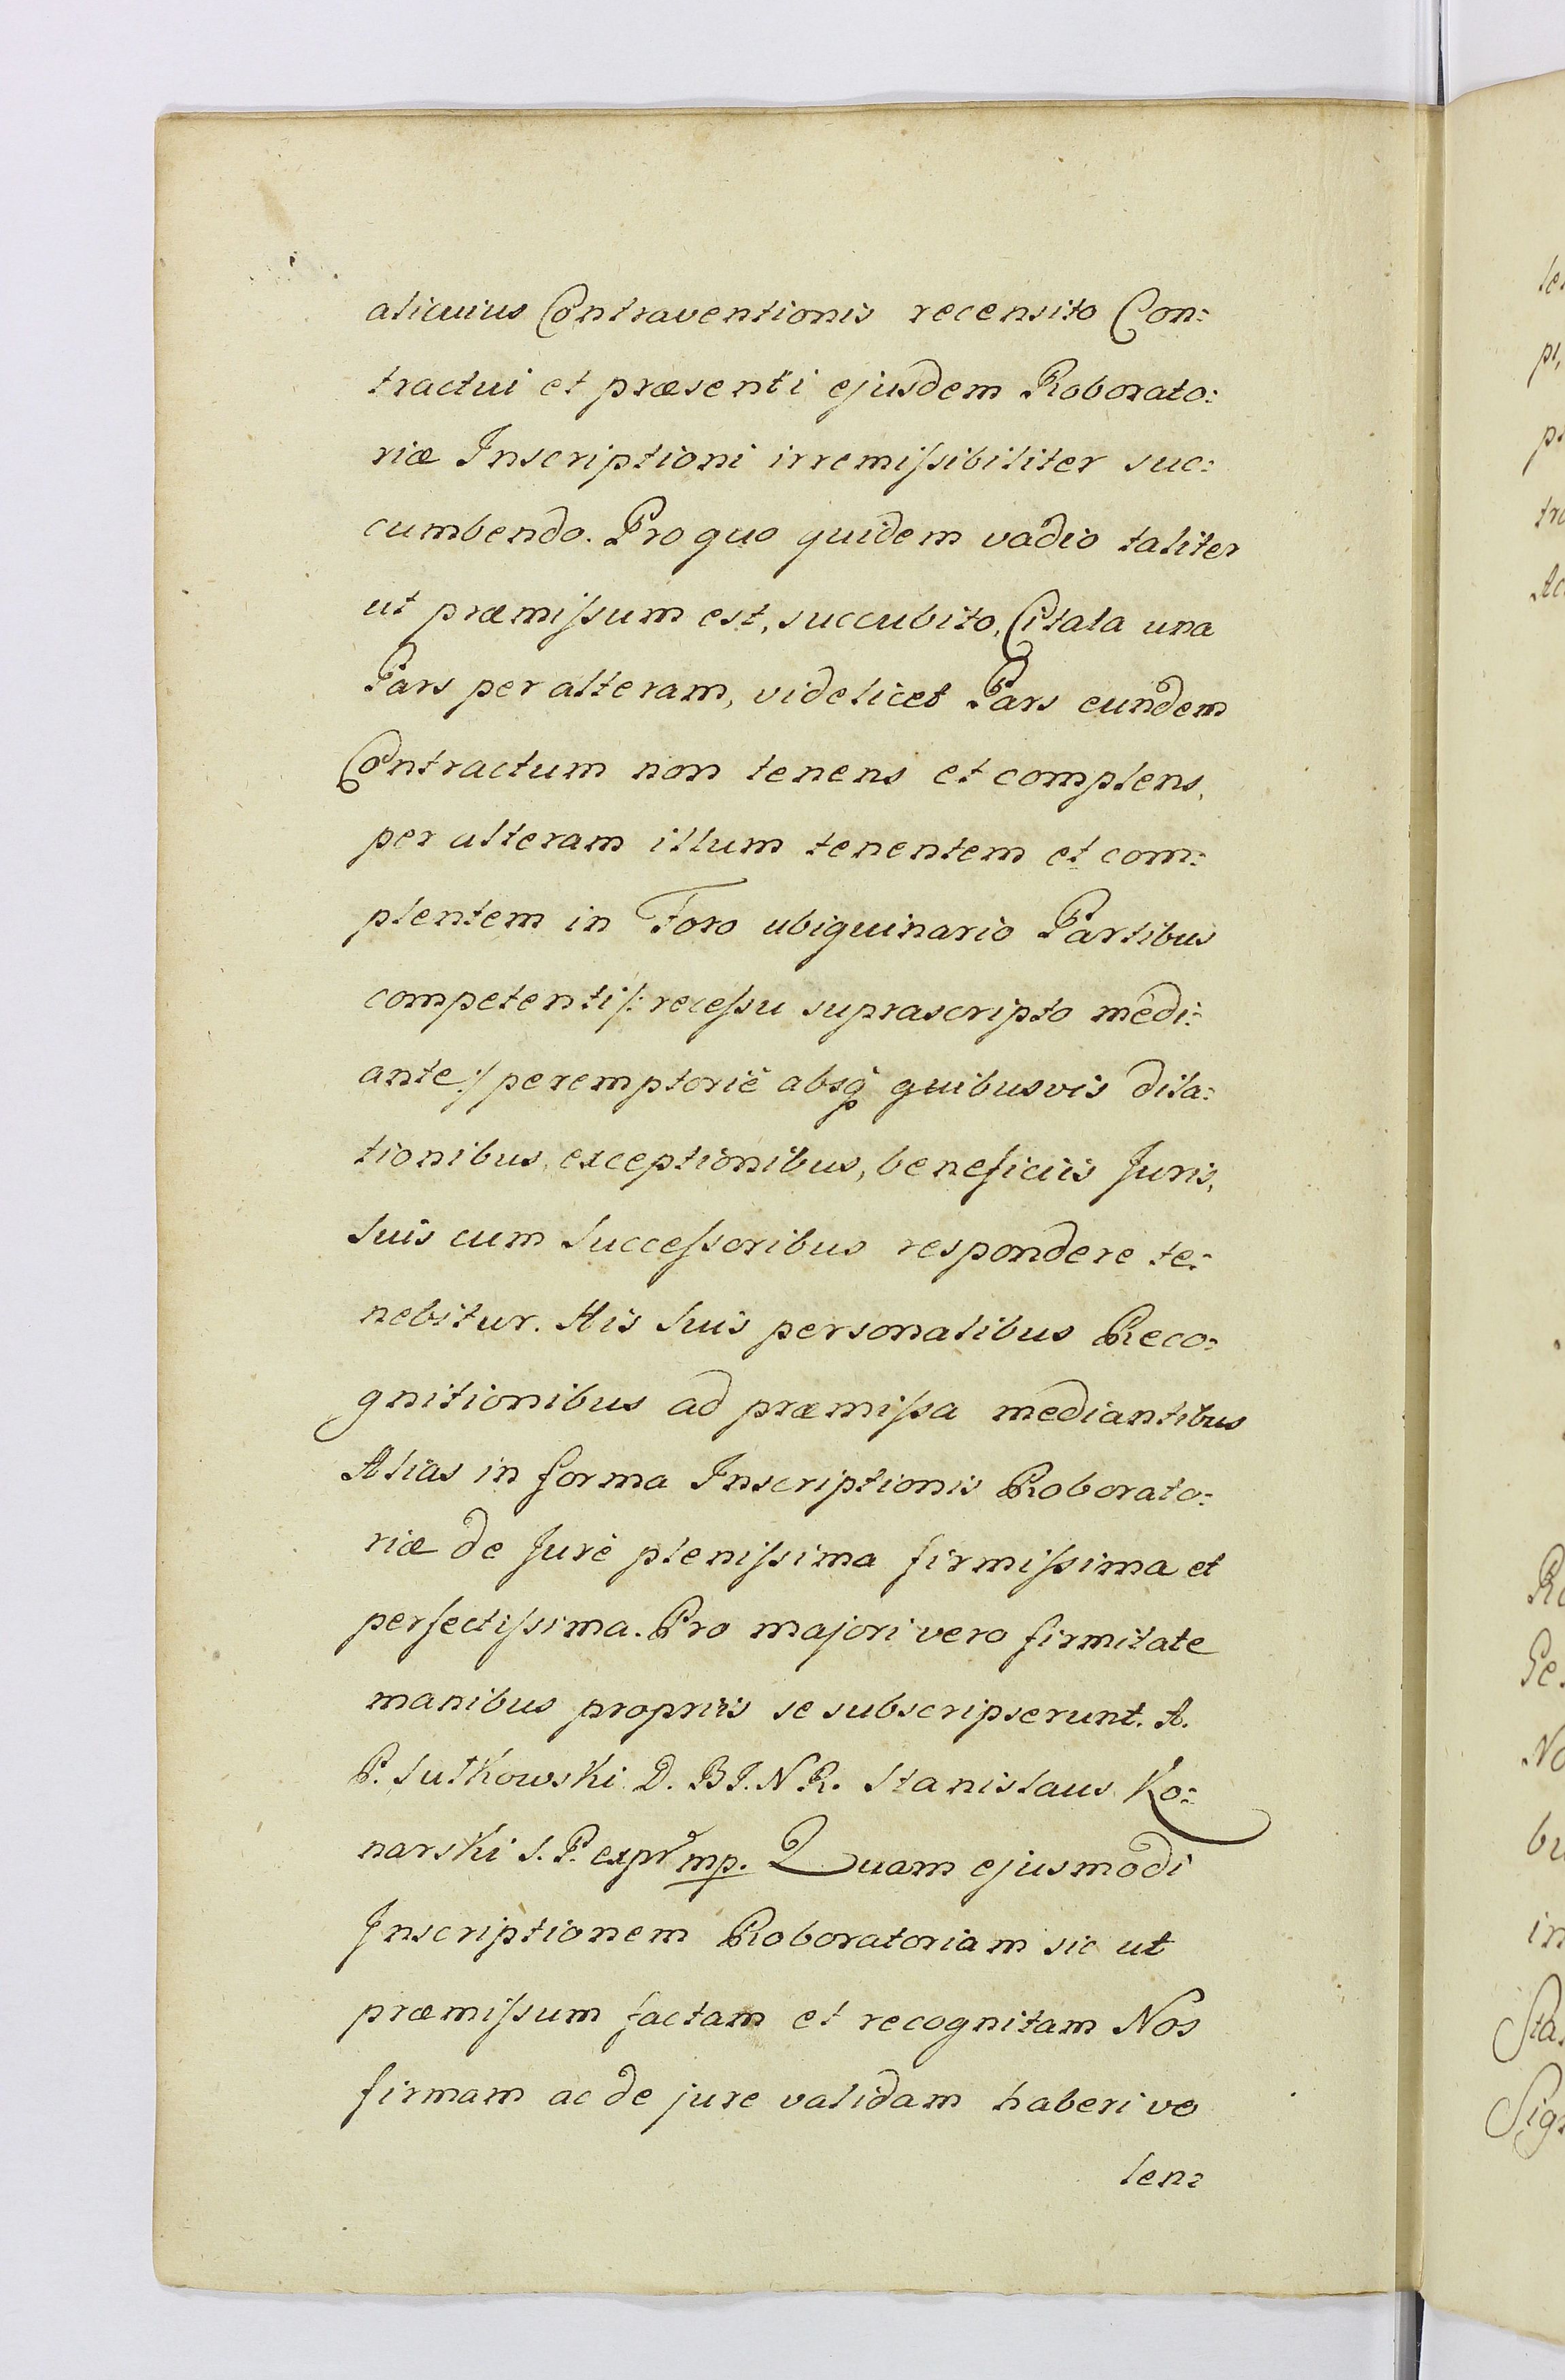 alicuius Contraventionis recensito Con:
tractui et præsenti ejusdem Roborato:
riæ Inscriptioni irremiſsibiliter suc:
cumbendo. Pro quo quidem vadio taliter
ut præmiſsum est, succubito, Citata una
Pars per alteram, videlicet Pars eundem
Contractum non tenens et complens,
per alteram illum tenentem et com:
plentem in Foro ubiquinario Partibus
competenti /: receſsu suprascripto medi:
ante :/ peremptoriè absq̃ quibusvis dila:
tionibus, exceptionibus, beneficiis Juris,
suis cum Succeſsoribus respondere te:
nebitur. His suis personalibus Reco:
gnitionibus ad præmiſsa mediantibus
Alias in forma Inscriptionis Roborato:
riæ de Jure pleniſsima firmiſsima et
perfectiſsima. Pro majori vero firmitate
manibus propriis se subscripserunt. A.
P. Sutkowski D. B J. N R. Stanislaus Ko:
narski S. P. mp. Quam ejusmodi
Inscriptionem Roboratoriam sic ut
præmiſsum factam et recognitam Nos
firmam ac de jure validam haberi vo
len: